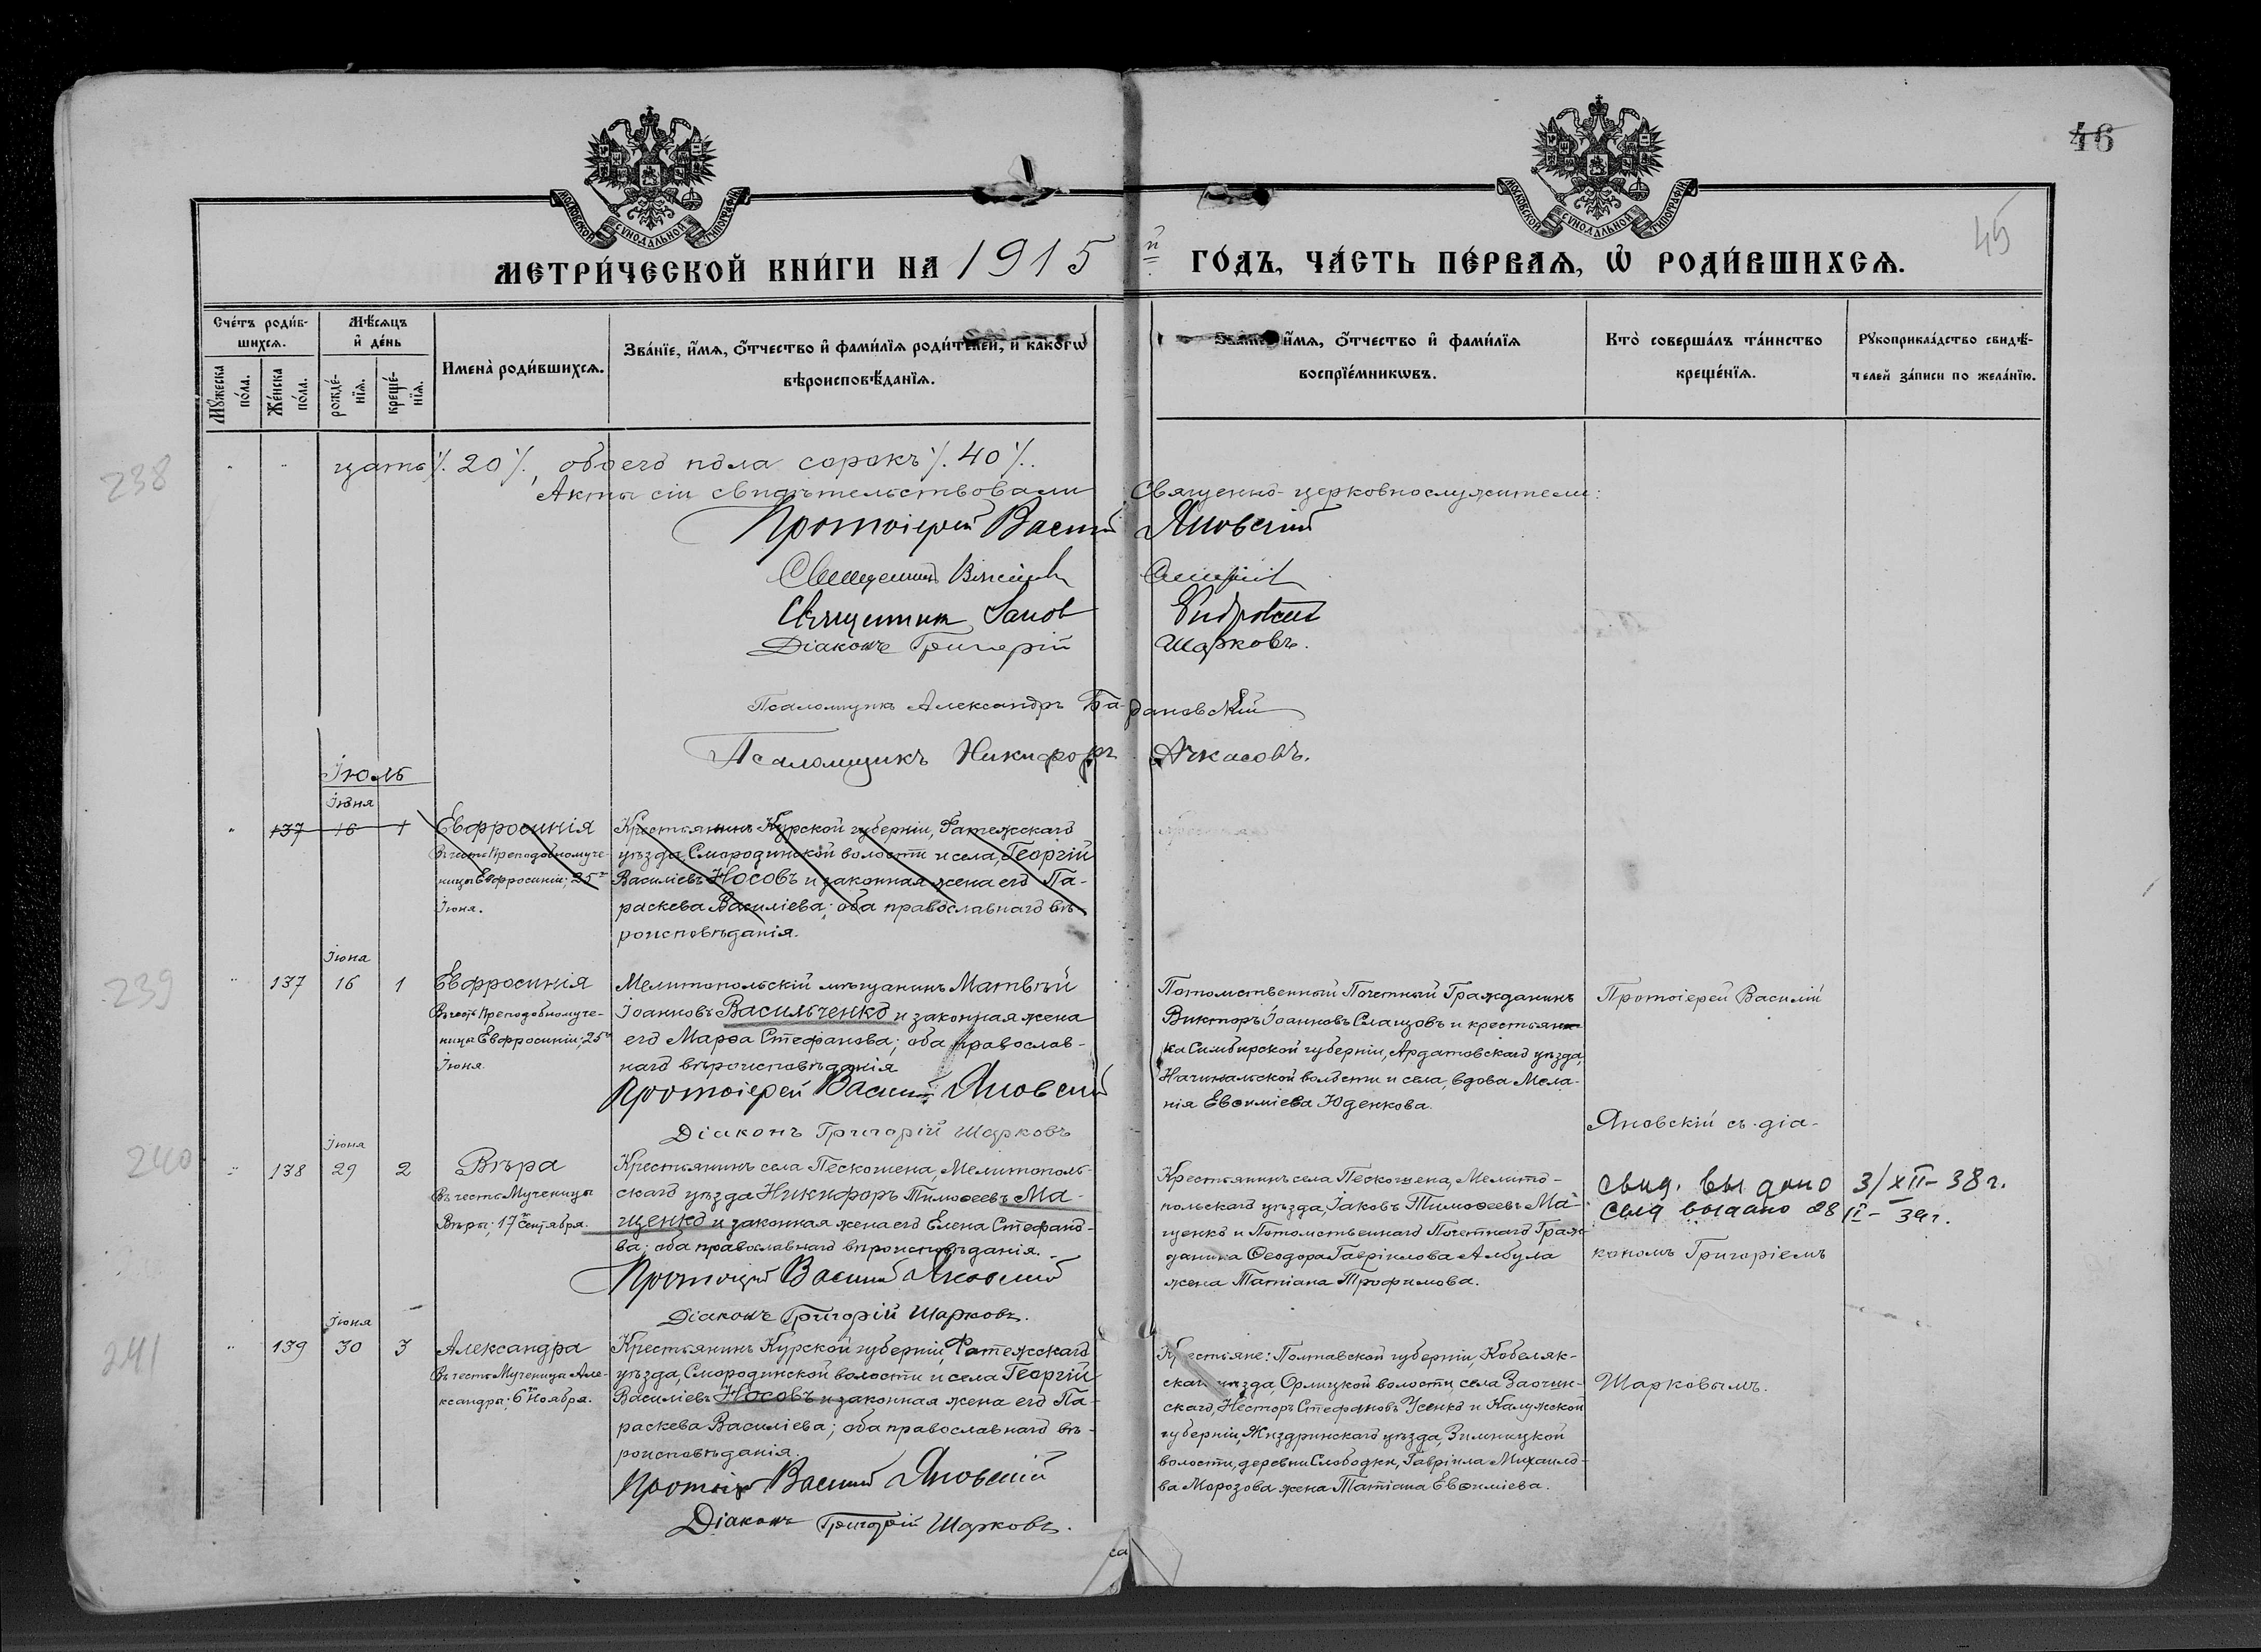 46
45
МОСКОВСКОЙ СѴНОДАЛЬНОЙ ТИПОГРАФІИ
МОСКОВСКОЙ СѴНОДАЛЬНОЙ ТИПОГРАФІИ
МЕТРИ́ЧЕСКОЙ КНИ́ГИ НА 1915 й ГО́ДЪ, ЧА́СТЬ ПЕ́РВАѦ, Ѡ҆ РОДИ́ВШИХСѦ.
Сче́тъ роди́в-
шихсѧ.
Мꙋ́жеска по́ла.
Же́нска по́ла.
Мѣ́сѧцъ
и҆ де́нь
рожде́-
нїѧ.
креще́-
нїѧ.
И҆мена̀ роди́вшихсѧ.
Зва́нїе, и҆́мѧ, ѻ҆́тчество и҆ фами́лїѧ роди́телей, и҆ како́гѡ
вѣроисповѣ́данїѧ.
Зва́нїе, и҆́мѧ, ѻ҆́тчество и҆ фами́лїѧ
воспрїе́мникѡвъ.
Кто̀ соверша́лъ та́инство
креще́нїѧ.
Рꙋкоприкла́дство свидѣ́-
телей за́писи по жела́нїю.
238
цать ٪ 20 ٪, обоего пола сорокъ ٪ 40 ٪.
Акты сіи свидѣтельствовали Священно-церковнослужители:
Протоіерей Василій Яновскій
Священникъ
Священникъ
Діаконъ Григорій Шарковъ.
Псаломщикъ Александръ Багдановскій
Псаломщикъ Никифоръ Ачкасовъ.
Іюль
Іюня
137 16 1 Евфросинія
Въ честь Преподобномуче-
ницы Евфросиніи; 25 г
Іюня.
Крестьянинъ Курской губерніи, Фатежскаго
уѣзда, Смородинской волости и села, Георгій
Василіевъ Носовъ и законная жена его Па-
раскева Василіева; оба православнаго вѣ-
роисповѣданія.
239
Іюна
137 16 1 Евфросинія
Въ честь Преподобномуче-
ницы Евфросиніи; 25 го
Іюня.
Мелитопольскій мѣщанинъ Матвѣй
Іоанновъ Васильченко и законная жена
его Марѳа Стефанова; оба православ-
наго вѣроисповѣданія
Протоіерей Василій Яновскій
Діаконъ Григорій Шарковъ
Потомственный Почетный Гражданинъ
Викторъ Іоанновъ Слащовъ и крестьян-
ка Симбирской губерніи, Ардатовскаго уѣзда,
волости и села, вдова Мела-
нія Евѳиміева Юденкова.
Протоіерей Василій
Яновскій съ діа-
240
Іюня
138 29 2 Вѣра
Въ честь Мученицы
Вѣры; 17 г Сентября.
Крестьянинъ села Пескошена, Мелитополь-
скаго уѣзда Никифоръ Тимоѳеевъ Ма-
щенко и законная жена его Елена Стефано-
ва; оба православнаго вѣроисповѣданія.
Протоіерей Василій Яновскій
Діаконъ Григорій Шарковъ.
Крестьянинъ села Пескошена, Мелито-
польскаго уѣзда, Іаковъ Тимоѳеевъ Ма-
щенко и Потомственнаго Почетнаго Граж-
данина Ѳеодора Гавріилова Амбула
жена Татіана Трофимова.
свид. выдано 3/XII-38 г.
свид выдано 28 II - 39 г.
кономъ Григоріемъ
241
Іюня
139 30 3 Александра
Въ честь Мученицы Але-
ксандры; 6 го Ноября.
Крестьянинъ Курской губерніи, Фатежскаго
уѣзда, Смородинской волости и села Георгій
Василіевъ Носовъ и законная жена его Па-
раскева Василіева; оба православнаго вѣ-
роисповѣданія.
Протоіер Василій Яновскій
Діаконъ Григорій Шарковъ.
Крестьяне: Полтавской губерніи, Кобеляк-
скаго уѣзда, Орлицкой волости, села Заочин-
скаго, Несторъ Стефановъ Усенко и Калужской
губерніи, Жиздринскаго уѣзда, Зимницкой
волости, деревни Слободки, Гавріила Михаило-
ва Морозова жена Татіана Евѳиміева.
Шарковымъ.
са